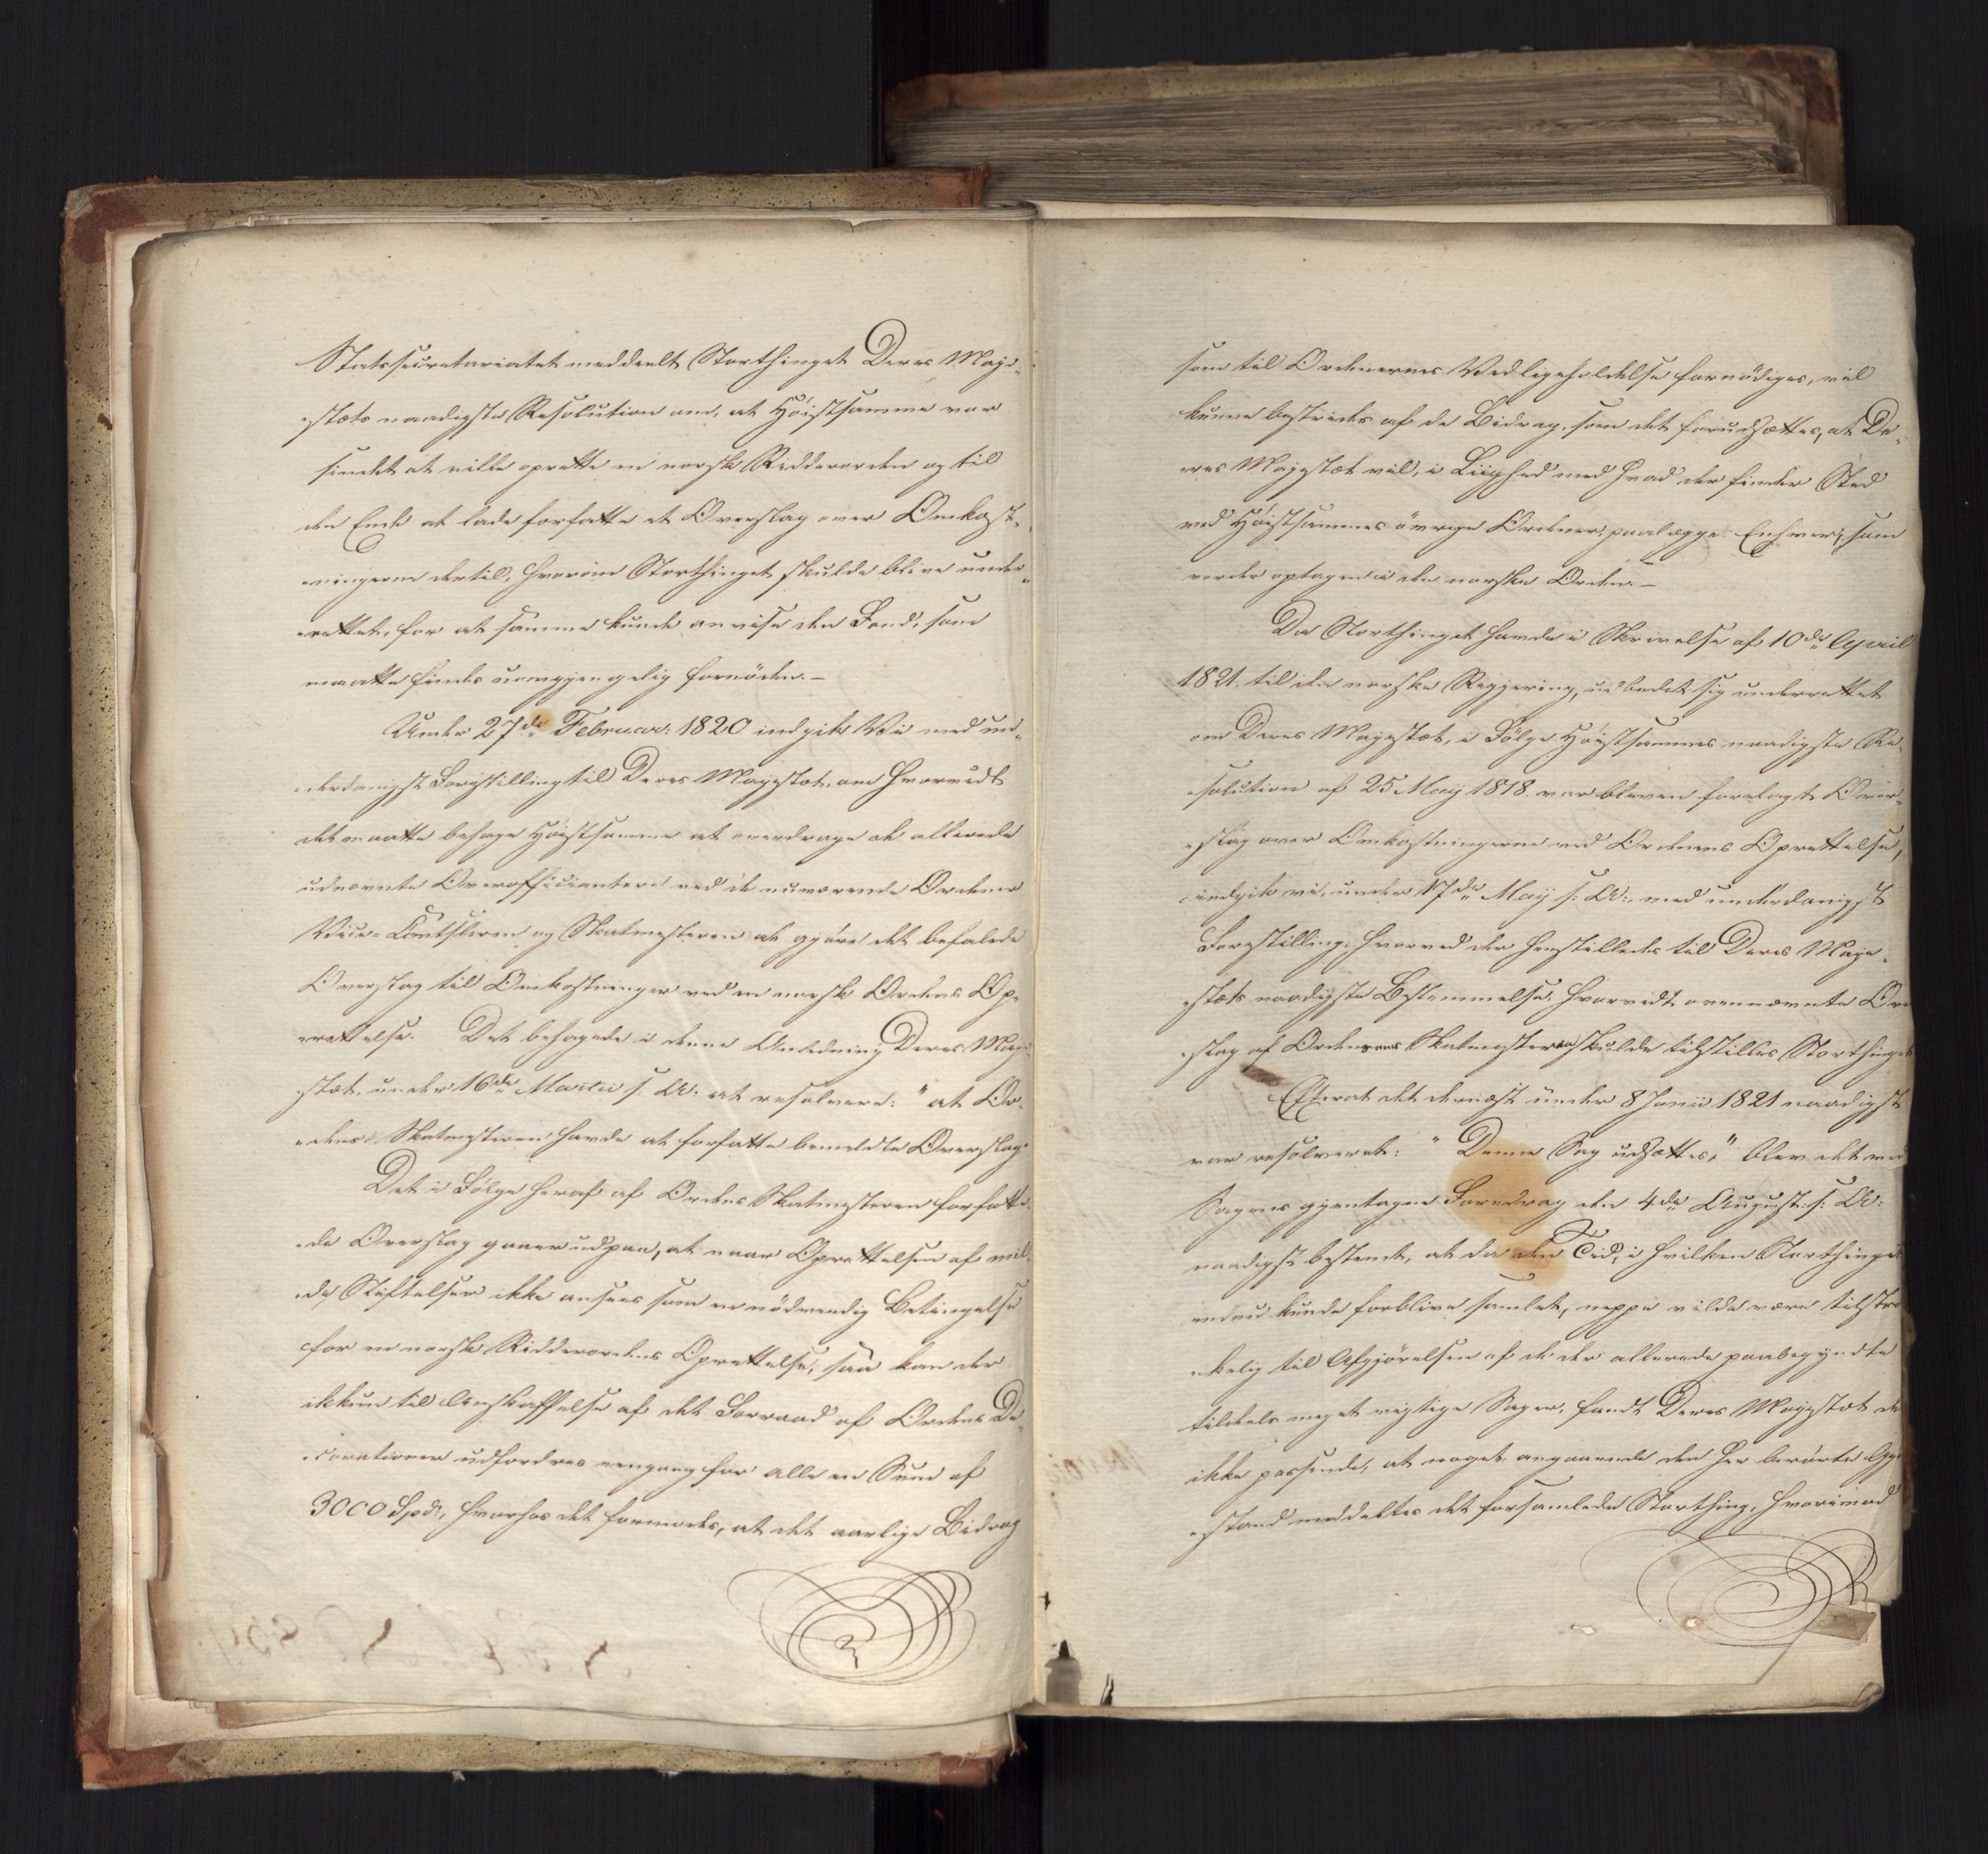 Statssecretariatet meddeelt Storthinget Deres Maje-
-stæts naadigste Resolution om, at Høistsamme var
sindet at ville oprette en norsk Ridderorden og til
den Ende at lade forfatte et Overslag over Omkost-
-ningerne dertil, hvorom Storthinget skulde blive under-
-rettet, for at samme kunde anvise den Fond, som
maatte findes uomgjengelig fornöden. -
Under 27de Februar: 1820 indgik Vi med un-
-derdanigst Forestilling til Deres Majestæt, om hvorvidt
det maatte behage Høistsamme at overdrage de allerede
udnævnte Overofficianter ved de nuværende Ordener
Vice-Cantsleren og Skatmesteren at gjöre det befalede
Overslag til Omkostninger ved en norsk Ordens Op-
-rettelse. Det behagede i denne Anledning Deres Maje-
-stæt, under 16de Martii s: A: at resolvere: "at Or-
-dens-Skatmesteren havde at forfatte bemeldte Overslag."
Det i Fölge heraf af Ordens Skatmesteren forfatte-
-de Overslag gaaer ud paa, at naar Oprettelsen af mil-
-de Stiftelser ikke ansees som en nödvendig Betingelse
for en norsk Ridderordens Oprettelse, saa kan der
ikkun til Anskaffelse af det Forraad af Ordens De-
-corationer udfordres eengang for alle en Sum af
3000 Spd:, hvorhos det formodes, at det aarlige Bidrag
som til Ordenernes Vedligeholdelse fornödiges, vil
kunne bestrides af de Bidrag, som det forudsættes, at De-
-res Majestæt vil, i Liighed med hvad der finder Sted
ved Høistsammes övrige Ordener, paalægge Enhver, som
vorder optagen i den norske Orden. -
Da Storthinget havde i Skrivelse af 10de April
1821. til den norske Regjering, udbedet sig underrettet
om Deres Majestæt, i Fölge Høistsammes naadigste Re-
-solution af 25 May 1818. var bleven forelagt Over-
-slag over Omkostningerne ved Ordenens Oprettelse,
indgik vi, under 17de May s: A:, med underdanigst
Forestilling, hvorved der henstilledes til Deres Maje-
-stæts naadigste Bestemmelse, hvorvidt ovennævnte Over
-slag af Ordenens Skatmesteren skulde tilstilles Storthinget
Efterat det dernæst under 8 Junii 1821 naadigst
var resolveret: "Denne Sag udsættes," blev det ved
Sagens gjentagne Foredrag den 4de August: s: A:
naadigst bestemt, at da den Tid, i hvilken Storthinget
endnu kunde forblive samlet, neppe vilde være tilstræ
-kelig til Afgjörelsen af de der allerede paabegyndte
tildeels meget vigtige Sager, fandt Deres Majestæt det
ikke passende, at noget angaaende den her berörte Gjen
-stand meddeltes det forsamlede Storthing, hvorimod